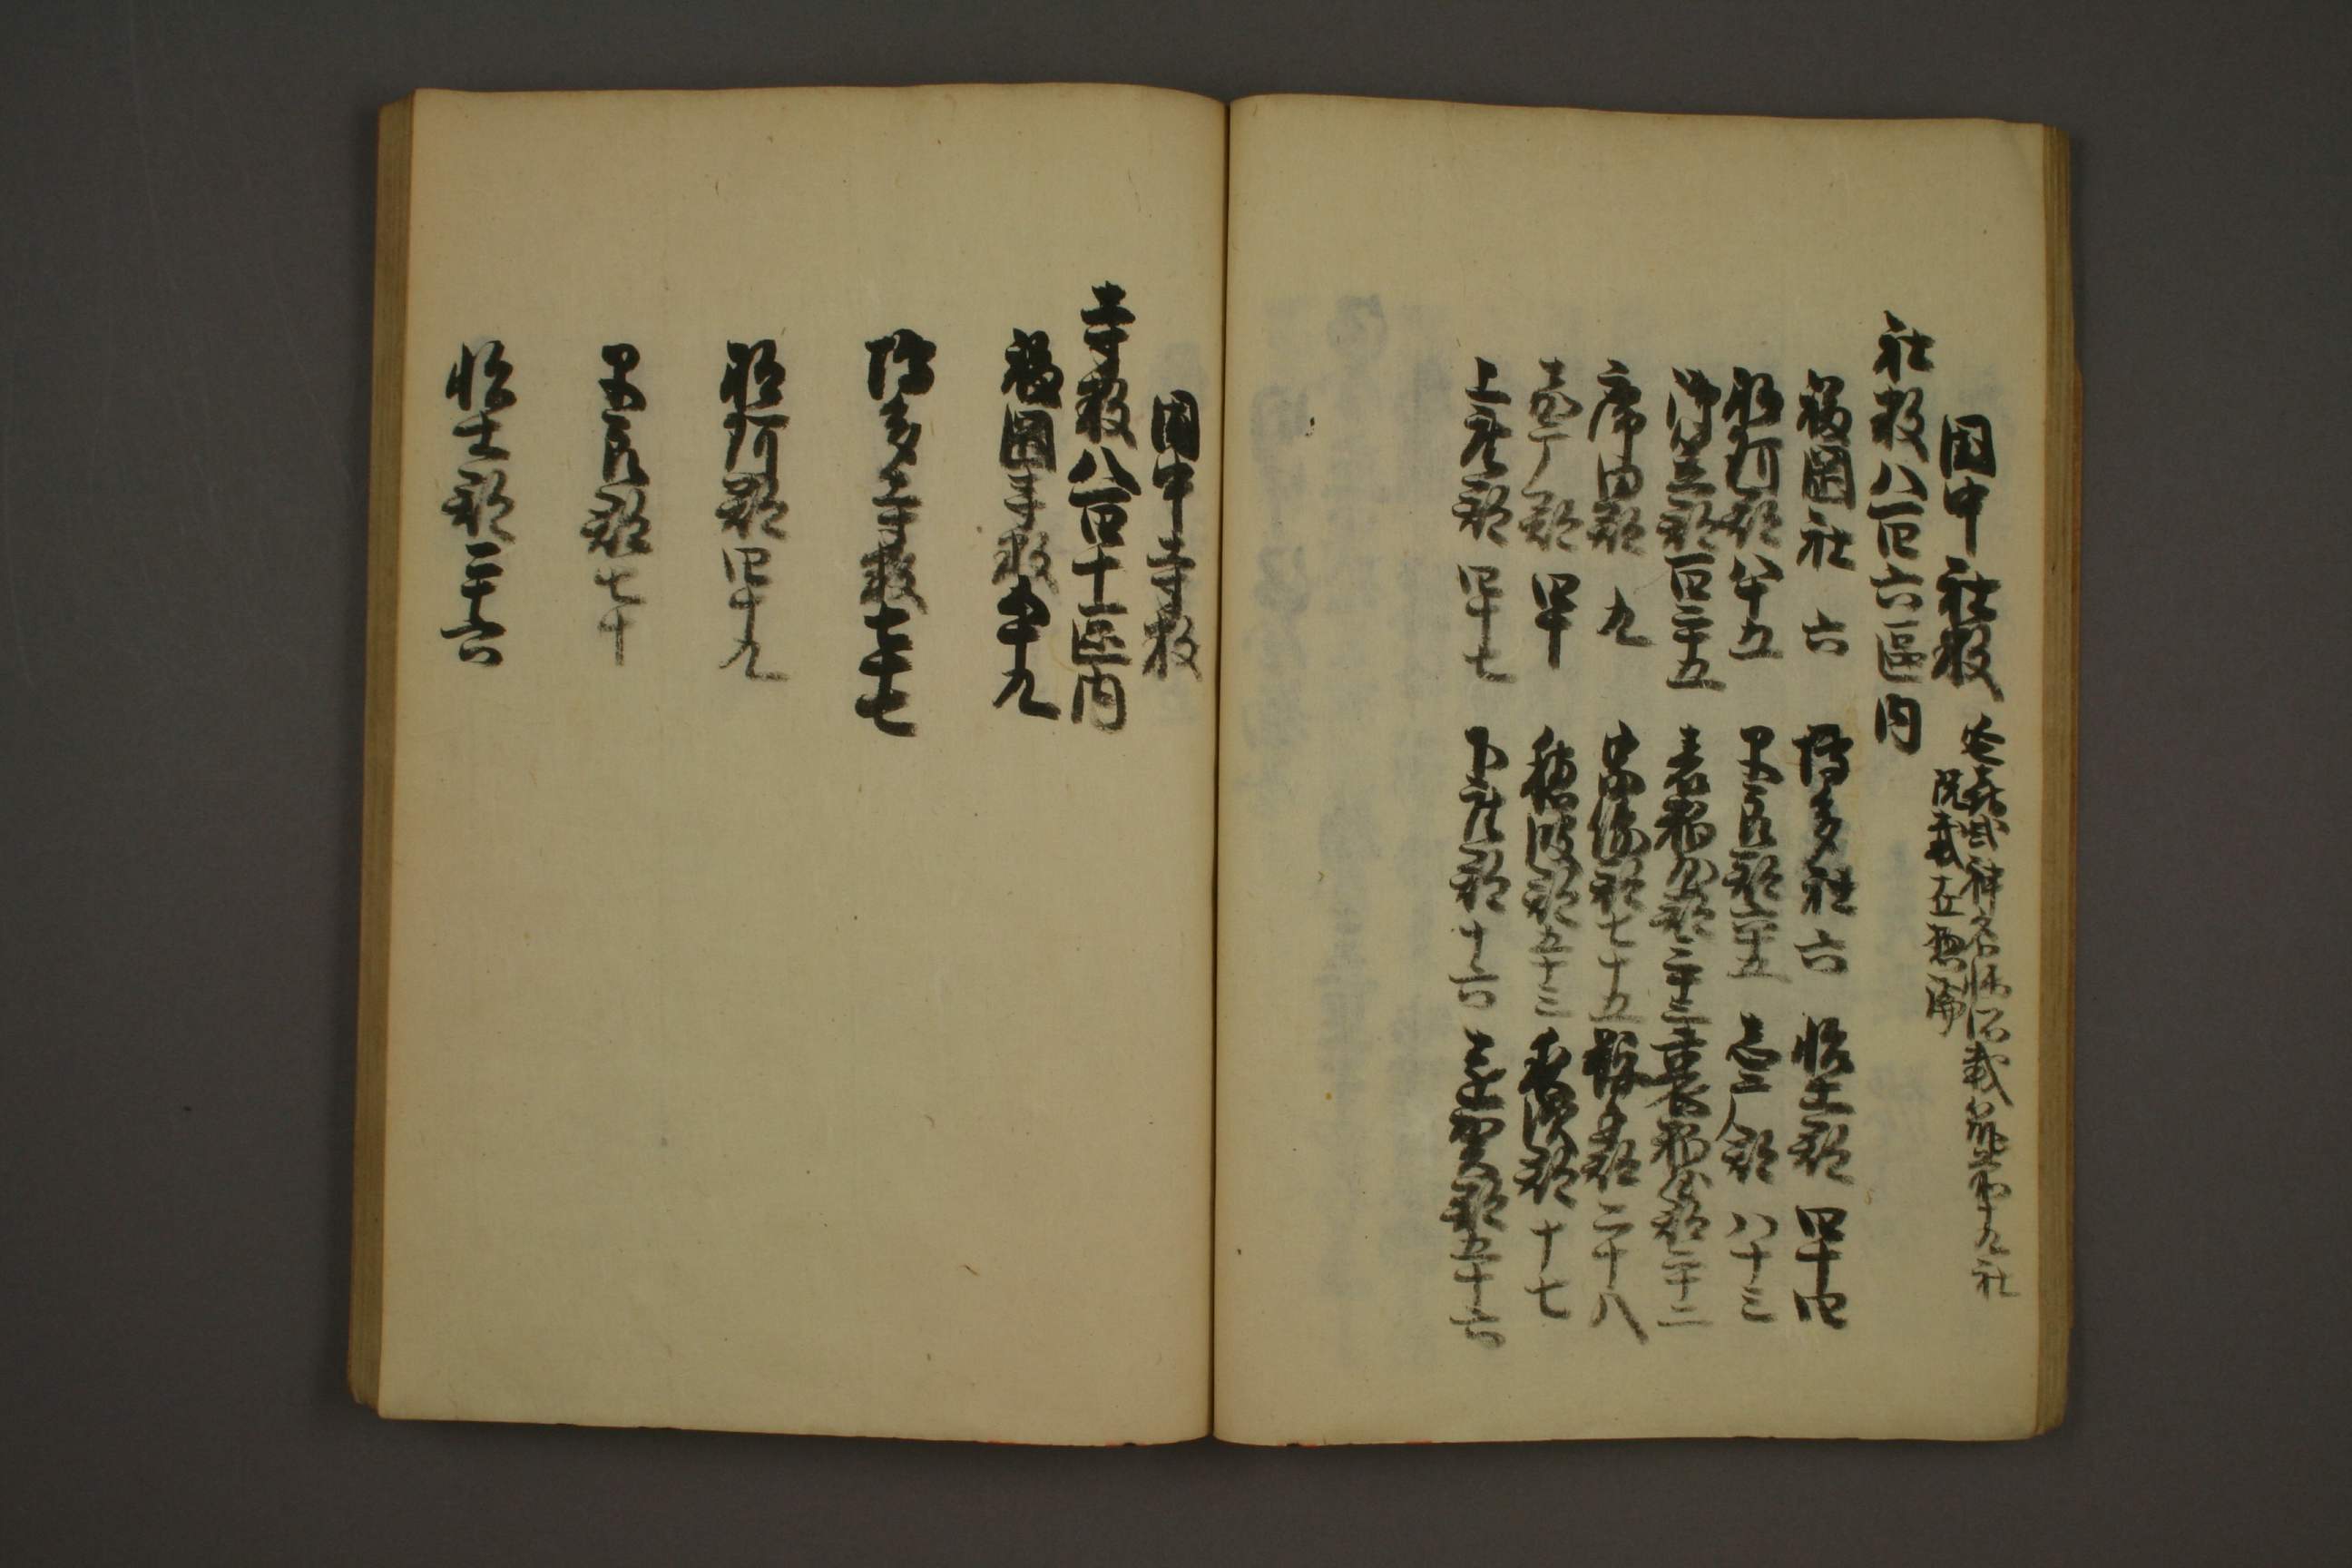 国中社数
延喜式神名帳所載筑前十九社
既載在惣論
社数八百六區内
福岡社 六 博多社 六 怡土郡 四十四
那珂郡 八十五 早良郡 六十五 志广郡 八十三
御笠郡 百二十五 表粕屋郡 三十三 裏粕屋郡 二十二
席田郡 九 宗像郡 七十五 鞍手郡 二十八
嘉广郡 四十 穂波郡 五十三 夜須郡 十七
上座郡 四十七 下座郡 十六 遠賀郡 五十六
国中寺数
寺数八百十一區内
福岡寺数 五十九
博多寺数 七十七
那珂郡 四十九
早良郡 七十
怡土郡 二十六